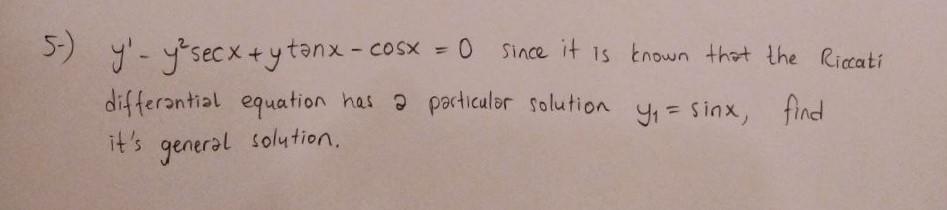 5-) y' - y² sec x + y tan x - cos x = 0 since it is known that the Riccati
differantial equation has a particular solution y₁ = sin x, find
it's general solution.